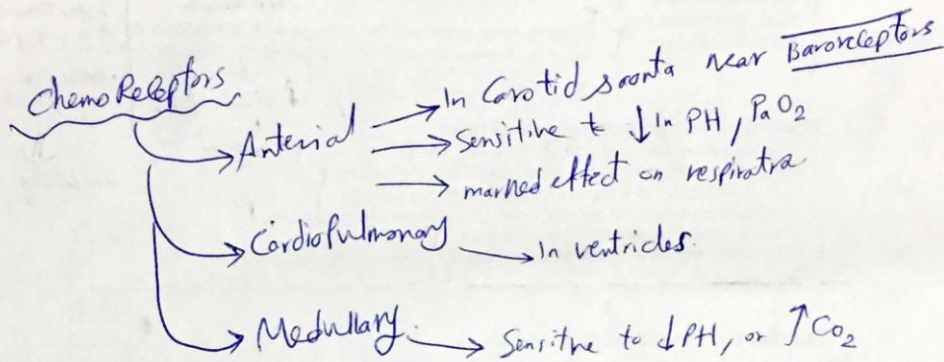 ChemoReceptors
Arterial → In Carotid & aorta near Baroreceptors
→ Sensitive to ↓ In PH, PaO2
→ marked effect on respiratn
→ CardioPulmonary → In ventricles.
→ Medullary. → Sensitive to ↓PH, or ↑CO2